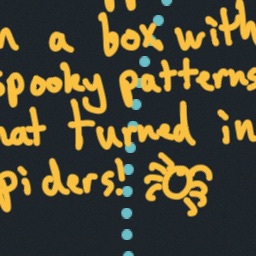 a box with
spooky patterns
hat turned in
piders!